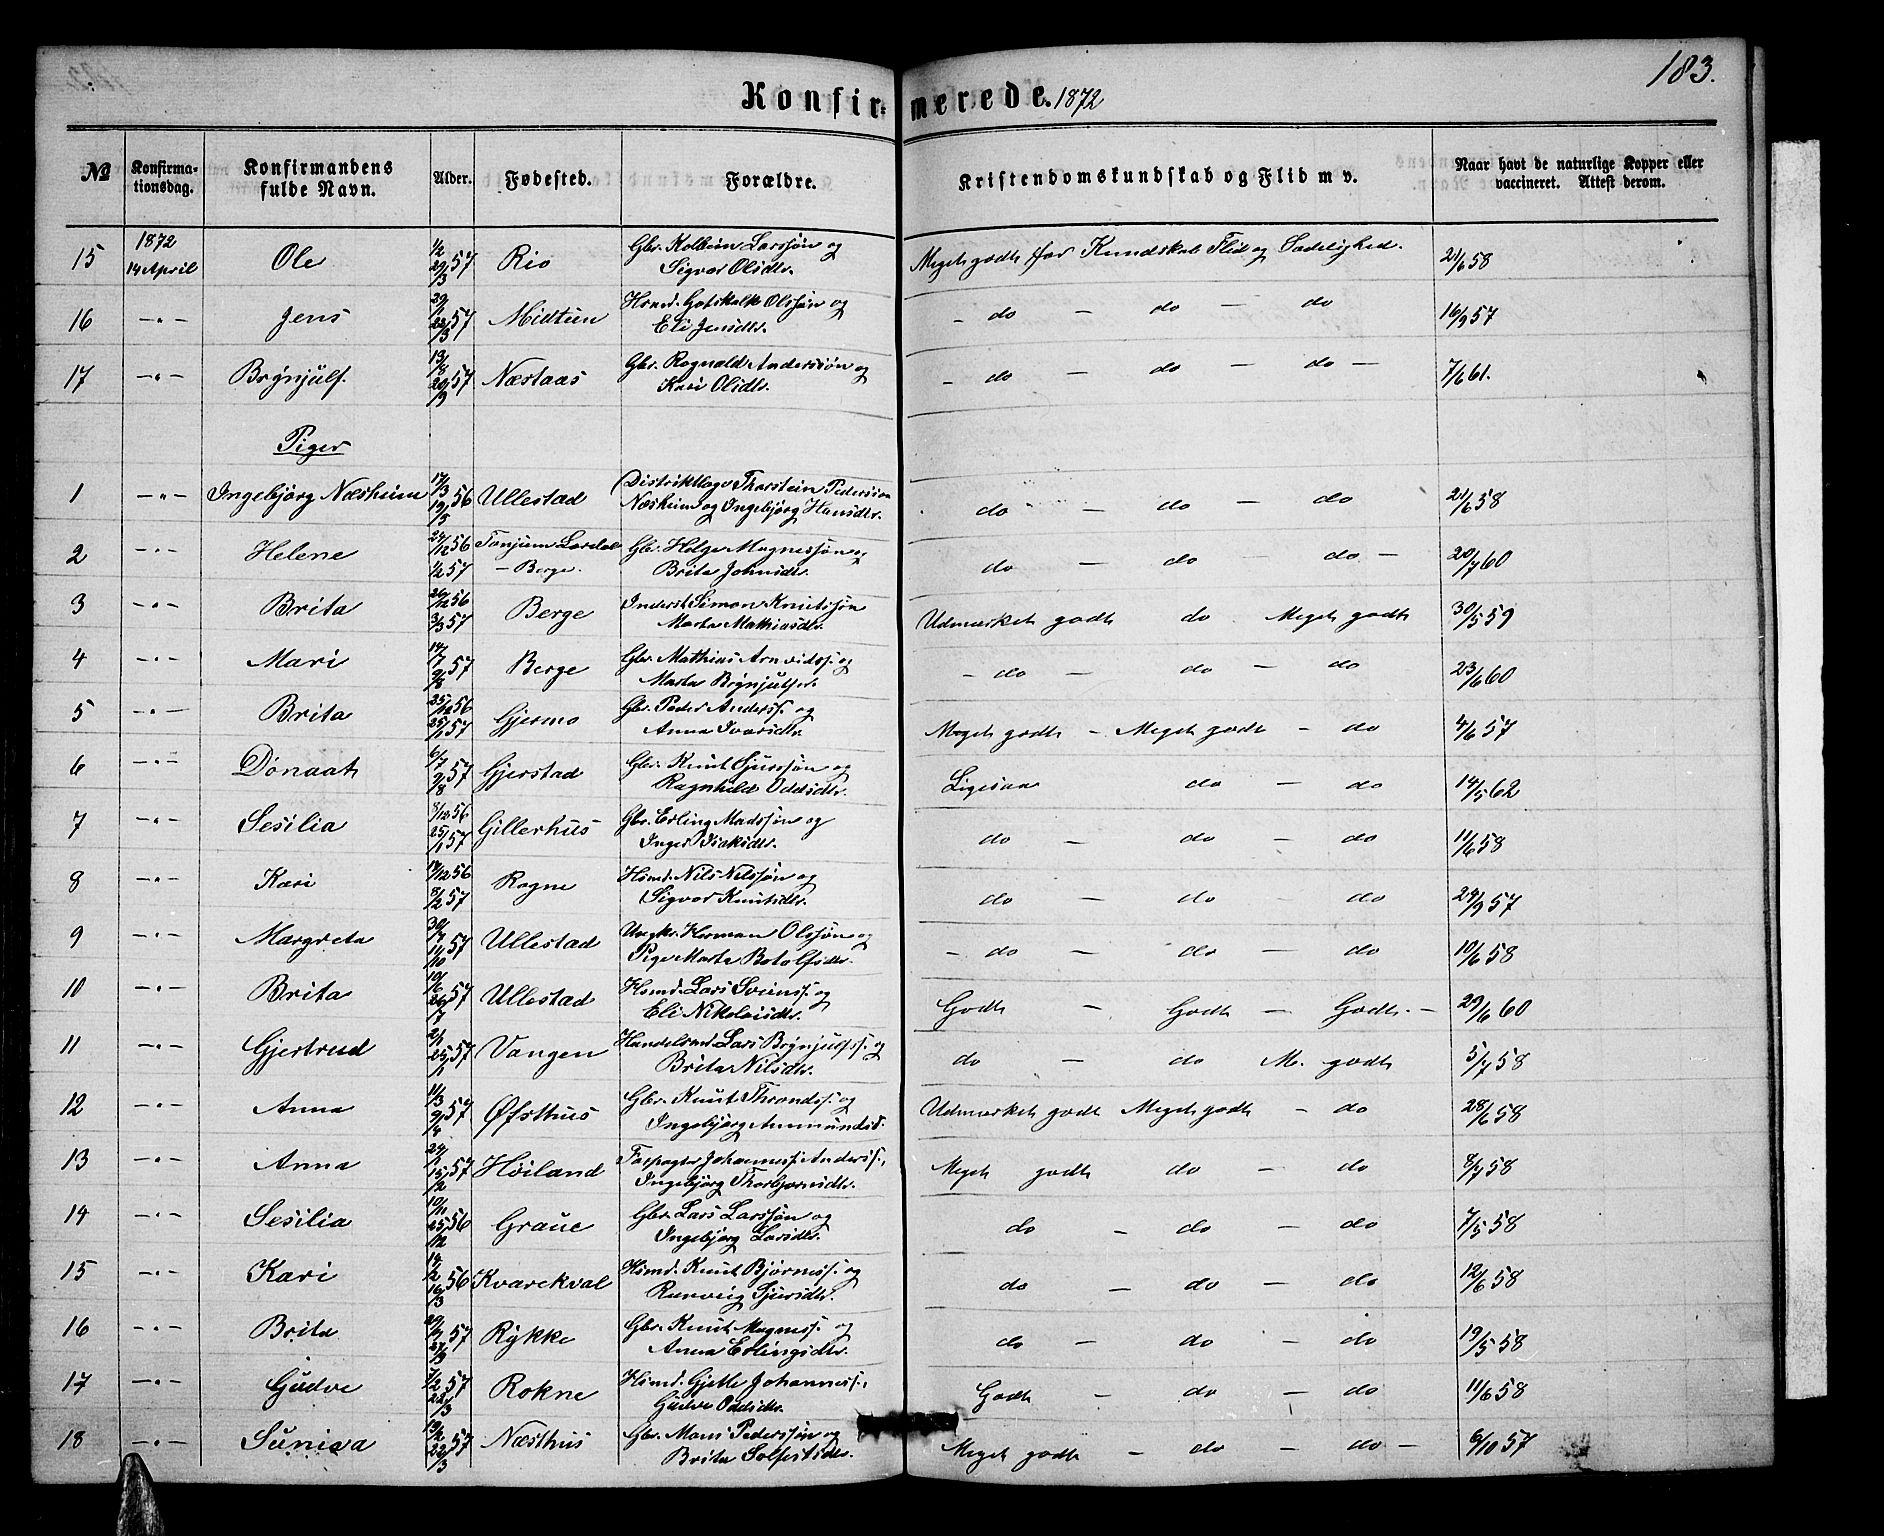 183.
Konfirmerede. 1872
№ Konfirmationsdag. Konfirmandens fulde Navn. Alder. Fødested. Forældre. Kristendomskundskab og Flid m v. Naar havt de naturlige Kopper eller vaccineret. Attest derom.
15 1872 14 April Ole 1/2 29/3 57 Rio Gbr. Kolbein Larssøn og Sigvor Olsdtr. Meget godt for Kundskab Flid og Sædelighed. 21/6 58
16 -"- Jens 57 Midtun Hsmd. Gotskalk Olssøn og Eli Jensdtr. - do - do - do 16/9 57
17 -"- Brynjulf. 13/8 20/9 57 Næstaas Gbr. Ragnald Anderssøn og Kari Olsdtr. - do - do - do - 7/6 61.
Piger
1 -"- Ingebjørg Næsheim 17/3 19/5 56 Ullestad Distriktlæge Thorstein Pederssøn Næsheim og Ingebjørg Hansdtr. do - do - do 21/6 58
2 -"- Helene 24/12 56 1/2 57 Tønjum Lærdal - Berge. Gbr. Helge Magnessøn og Brita Johnsdtr. do - do - do - 20/7 60
3 -"- Brita 26/12 56 3/3 57 Berge Inderst Simon Knutssøn Marta Mathiasdtr. Udmærket godt do Meget godt 30/5 59
4 -"- Mari 14/7 9/8 57 Berge Gbr. Mathias Arnvidss. og Marta Brynjulfsdr. - do - do - do 23/6 60
5 -"- Brita 25/12 56 25/1 57 Gjermo Gbr. Peder Anderss. og Anna Ivarsdtr. Meget godt - Meget godt - do 4/6 57
6 -"- Dønaat 6/7 9/8 57 Gjerstad Gbr. Knut Sjurssøn og Ragnhild Oddsdtr. Ligesaa do - do 14/5 62
7 -"- Sesilia 8/12 56 25/1 57 Gillerhus Gbr. Erling Madssøn og Inger Isaksdtr. do - do - do 11/6 58
8 -"- Kari 17/12 56 8/2 57 Rogne Hsmd. Nils Nilssøn og Sigvor Knutsdtr. do - do - do 24/9 57
9 -"- Margreta 57 Ullestad Ungkr. Herman Olssøn og Pige Marta Botolfsdtr. - do - do - do 10/6 58
10 -"- Brita 10/6 26/7 57 Ullestad Hsmd. Lars Svenss. og Eli Nikolaisdtr. Godt - Godt - Godt. - 29/6 60
11 -"- Gjertrud 2/1 25/1 57 Vangen Handelsmd. Lars Brynjulfss. og Brita Nilsdtr. do - do M. godt 5/7 58
12 -"- Anna 11/3 9/4 57 Øfsthus Gbr. Knut Throndss. og Ingebjørg Anmundsd. Udmærket godt Meget godt - do 28/6 58
13 -"- Anna 24/1 15/2 57 Høiland Forpagter Johannes Anderss., Ingebjørg Thorbjørnsdtr. Meget godt do - do 8/7 58
14 -"- Sesilia 10/11 25/12 56 Graue Gbr. Lars Larssøn og Ingebjørg Larsdtr. do - do - do 7/5 58
15 -"- Kari 14/2 16/3 56 Kvarekval Hsmd. Knut Bjørness. og Ranveig Sjursdtr. do - do - do 12/6 58
16 -"- Brita 57 Rykke Gbr. Knut Magness. og Anna Erlingsdtr. do - do - do 19/5 58
17 -"- Gudve 7/2 22/3 57 Rokne Hsmd. Gjetle Johanness., Gudve Oddsdtr. Godt - do - do 11/6 58
18 -"- Suniva 13/2 22/3 57 Næsthus Gbr. Mons Pederssøn og Brita Solfestsdtr. Meget godt - do - do - 6/10 57